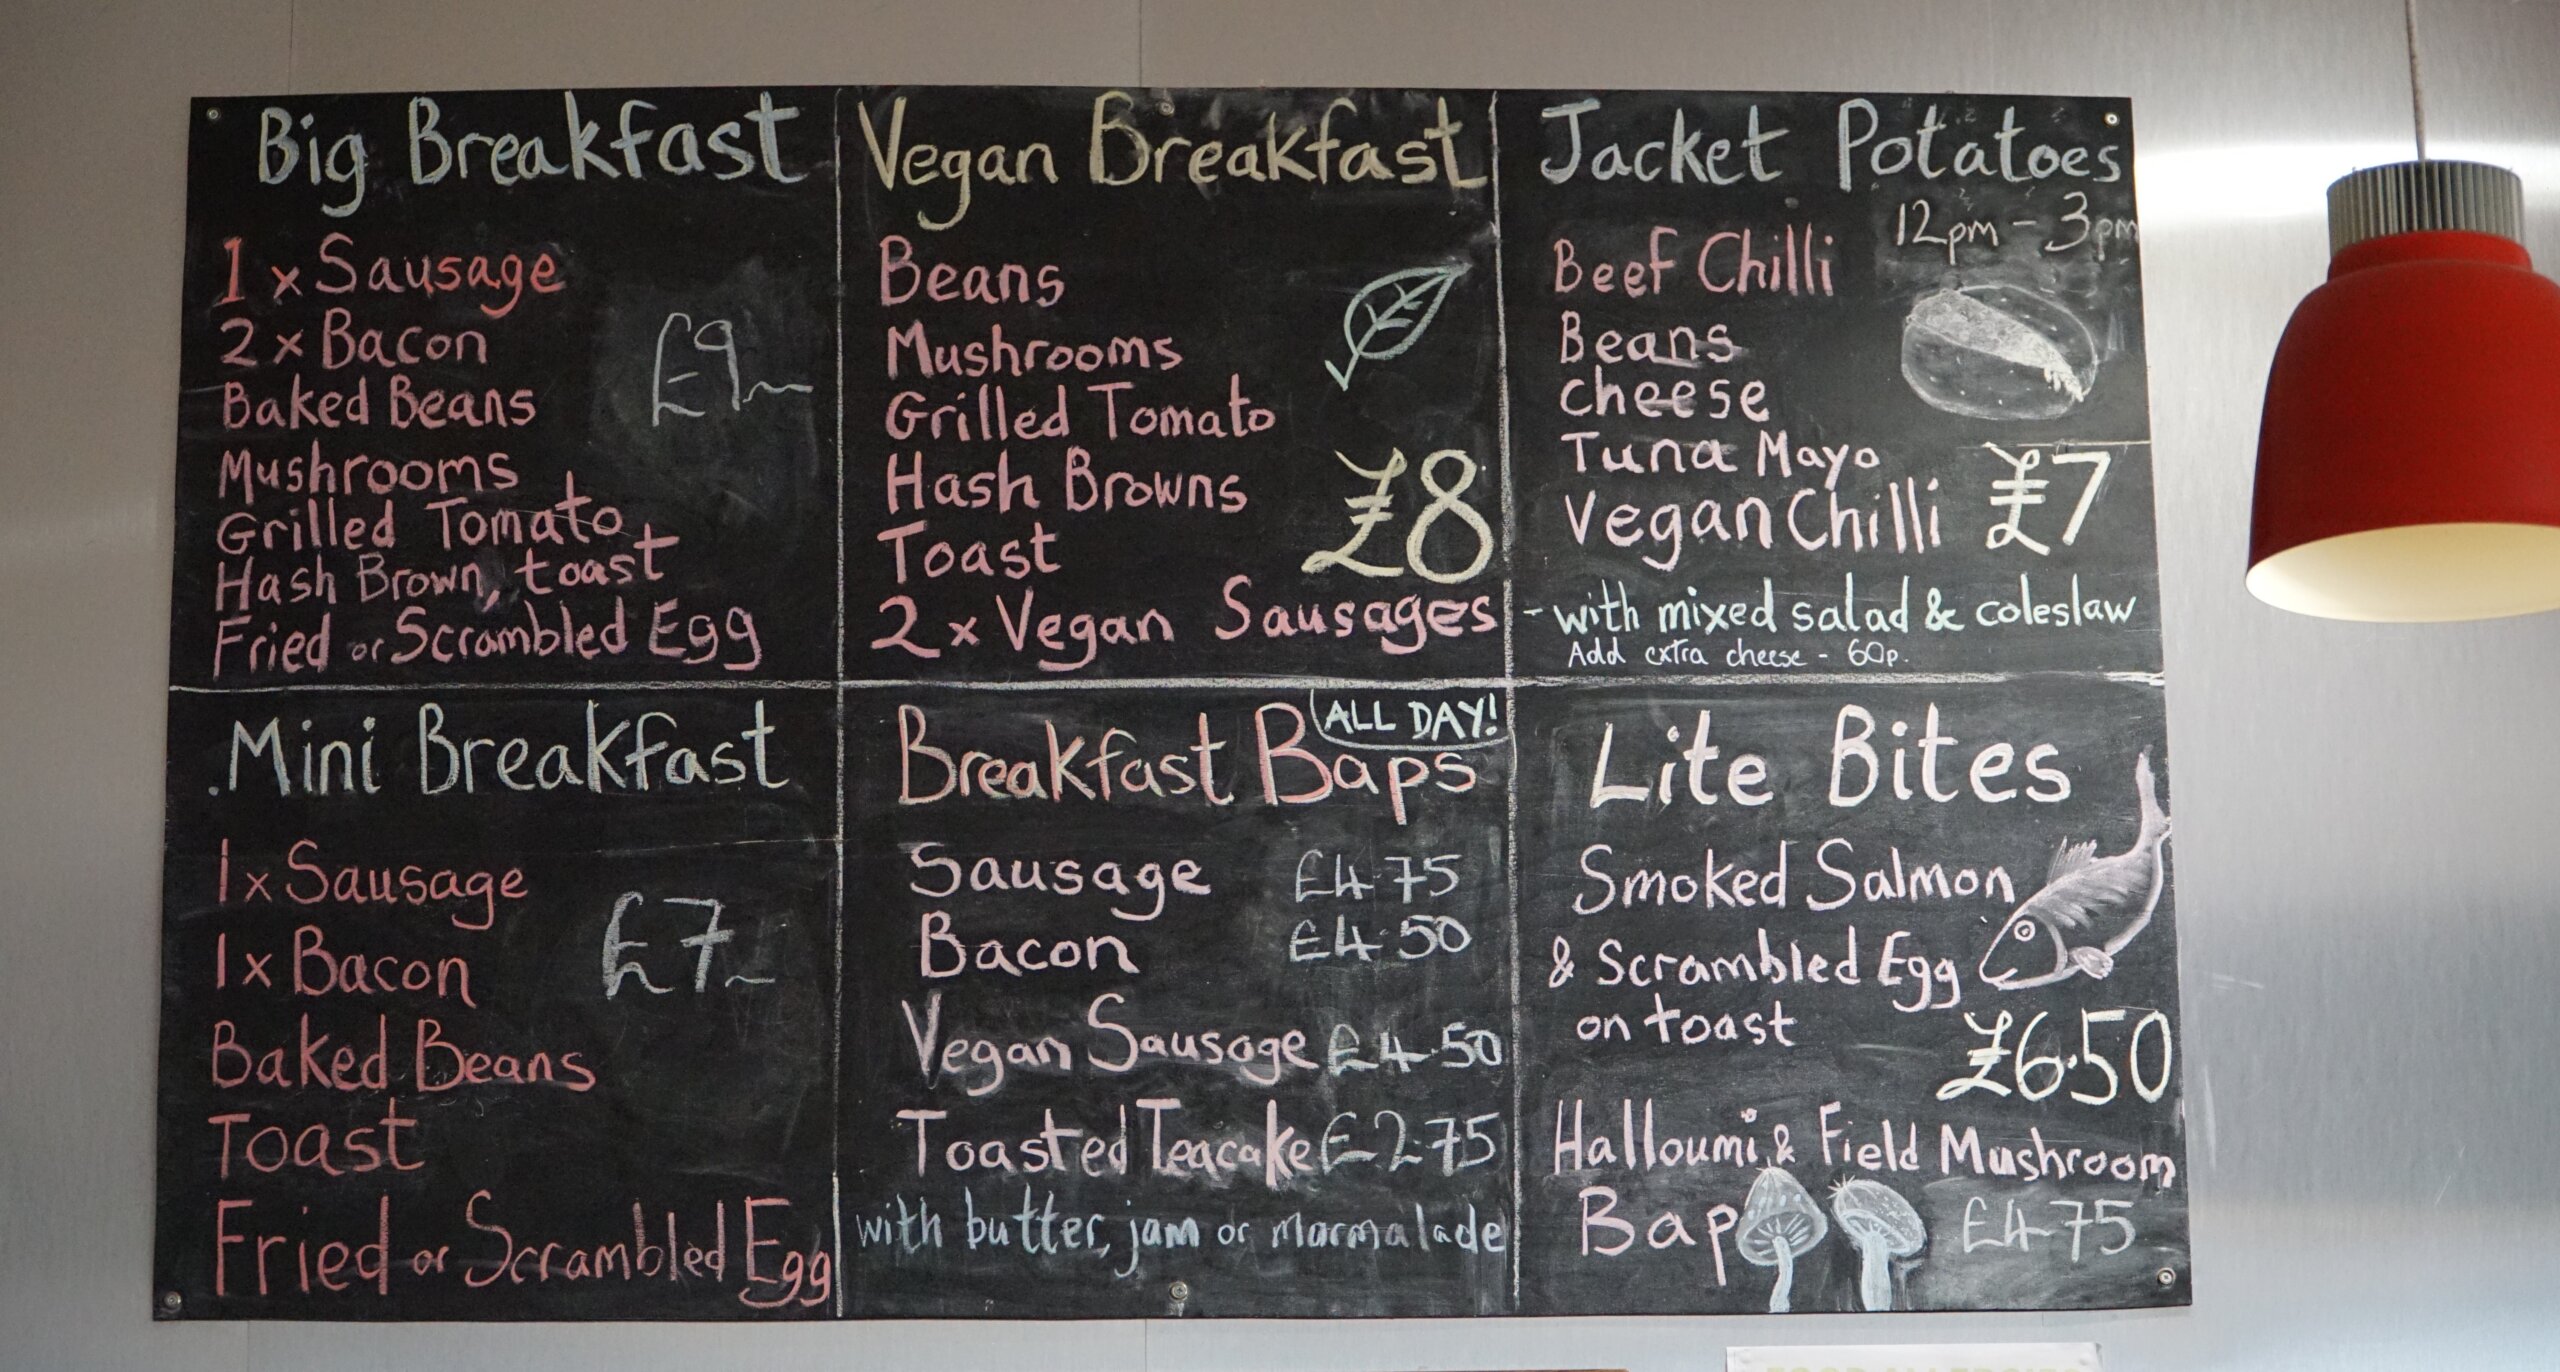 Big Breakfast
1 x Sausage
2 x Bacon
£9
Baked Beans
Mushrooms
Grilled Tomato
Hash Brown, toast
Fried or Scrambled Egg
Vegan Breakfast
Beans
Mushrooms
Grilled Tomato
Hash Browns
£8
Toast
2 x Vegan Sausages
Jacket Potatoes
12pm - 3pm
Beef Chilli
Beans
cheese
Tuna Mayo
£7
Vegan Chilli
- with mixed salad & coleslaw
Add extra cheese - 60p.
Mini Breakfast
1 x Sausage
1 x Bacon
£7
Baked Beans
Toast
Fried or Scrambled Egg
ALL DAY!
Breakfast Baps
Sausage £4.75
Bacon £4.50
Vegan Sausage £4.50
Toasted Teacake £2.75
with butter, jam or marmalade
Lite Bites
Smoked Salmon
& Scrambled Egg
on toast
£6.50
Halloumi & Field Mushroom
Bap £4.75